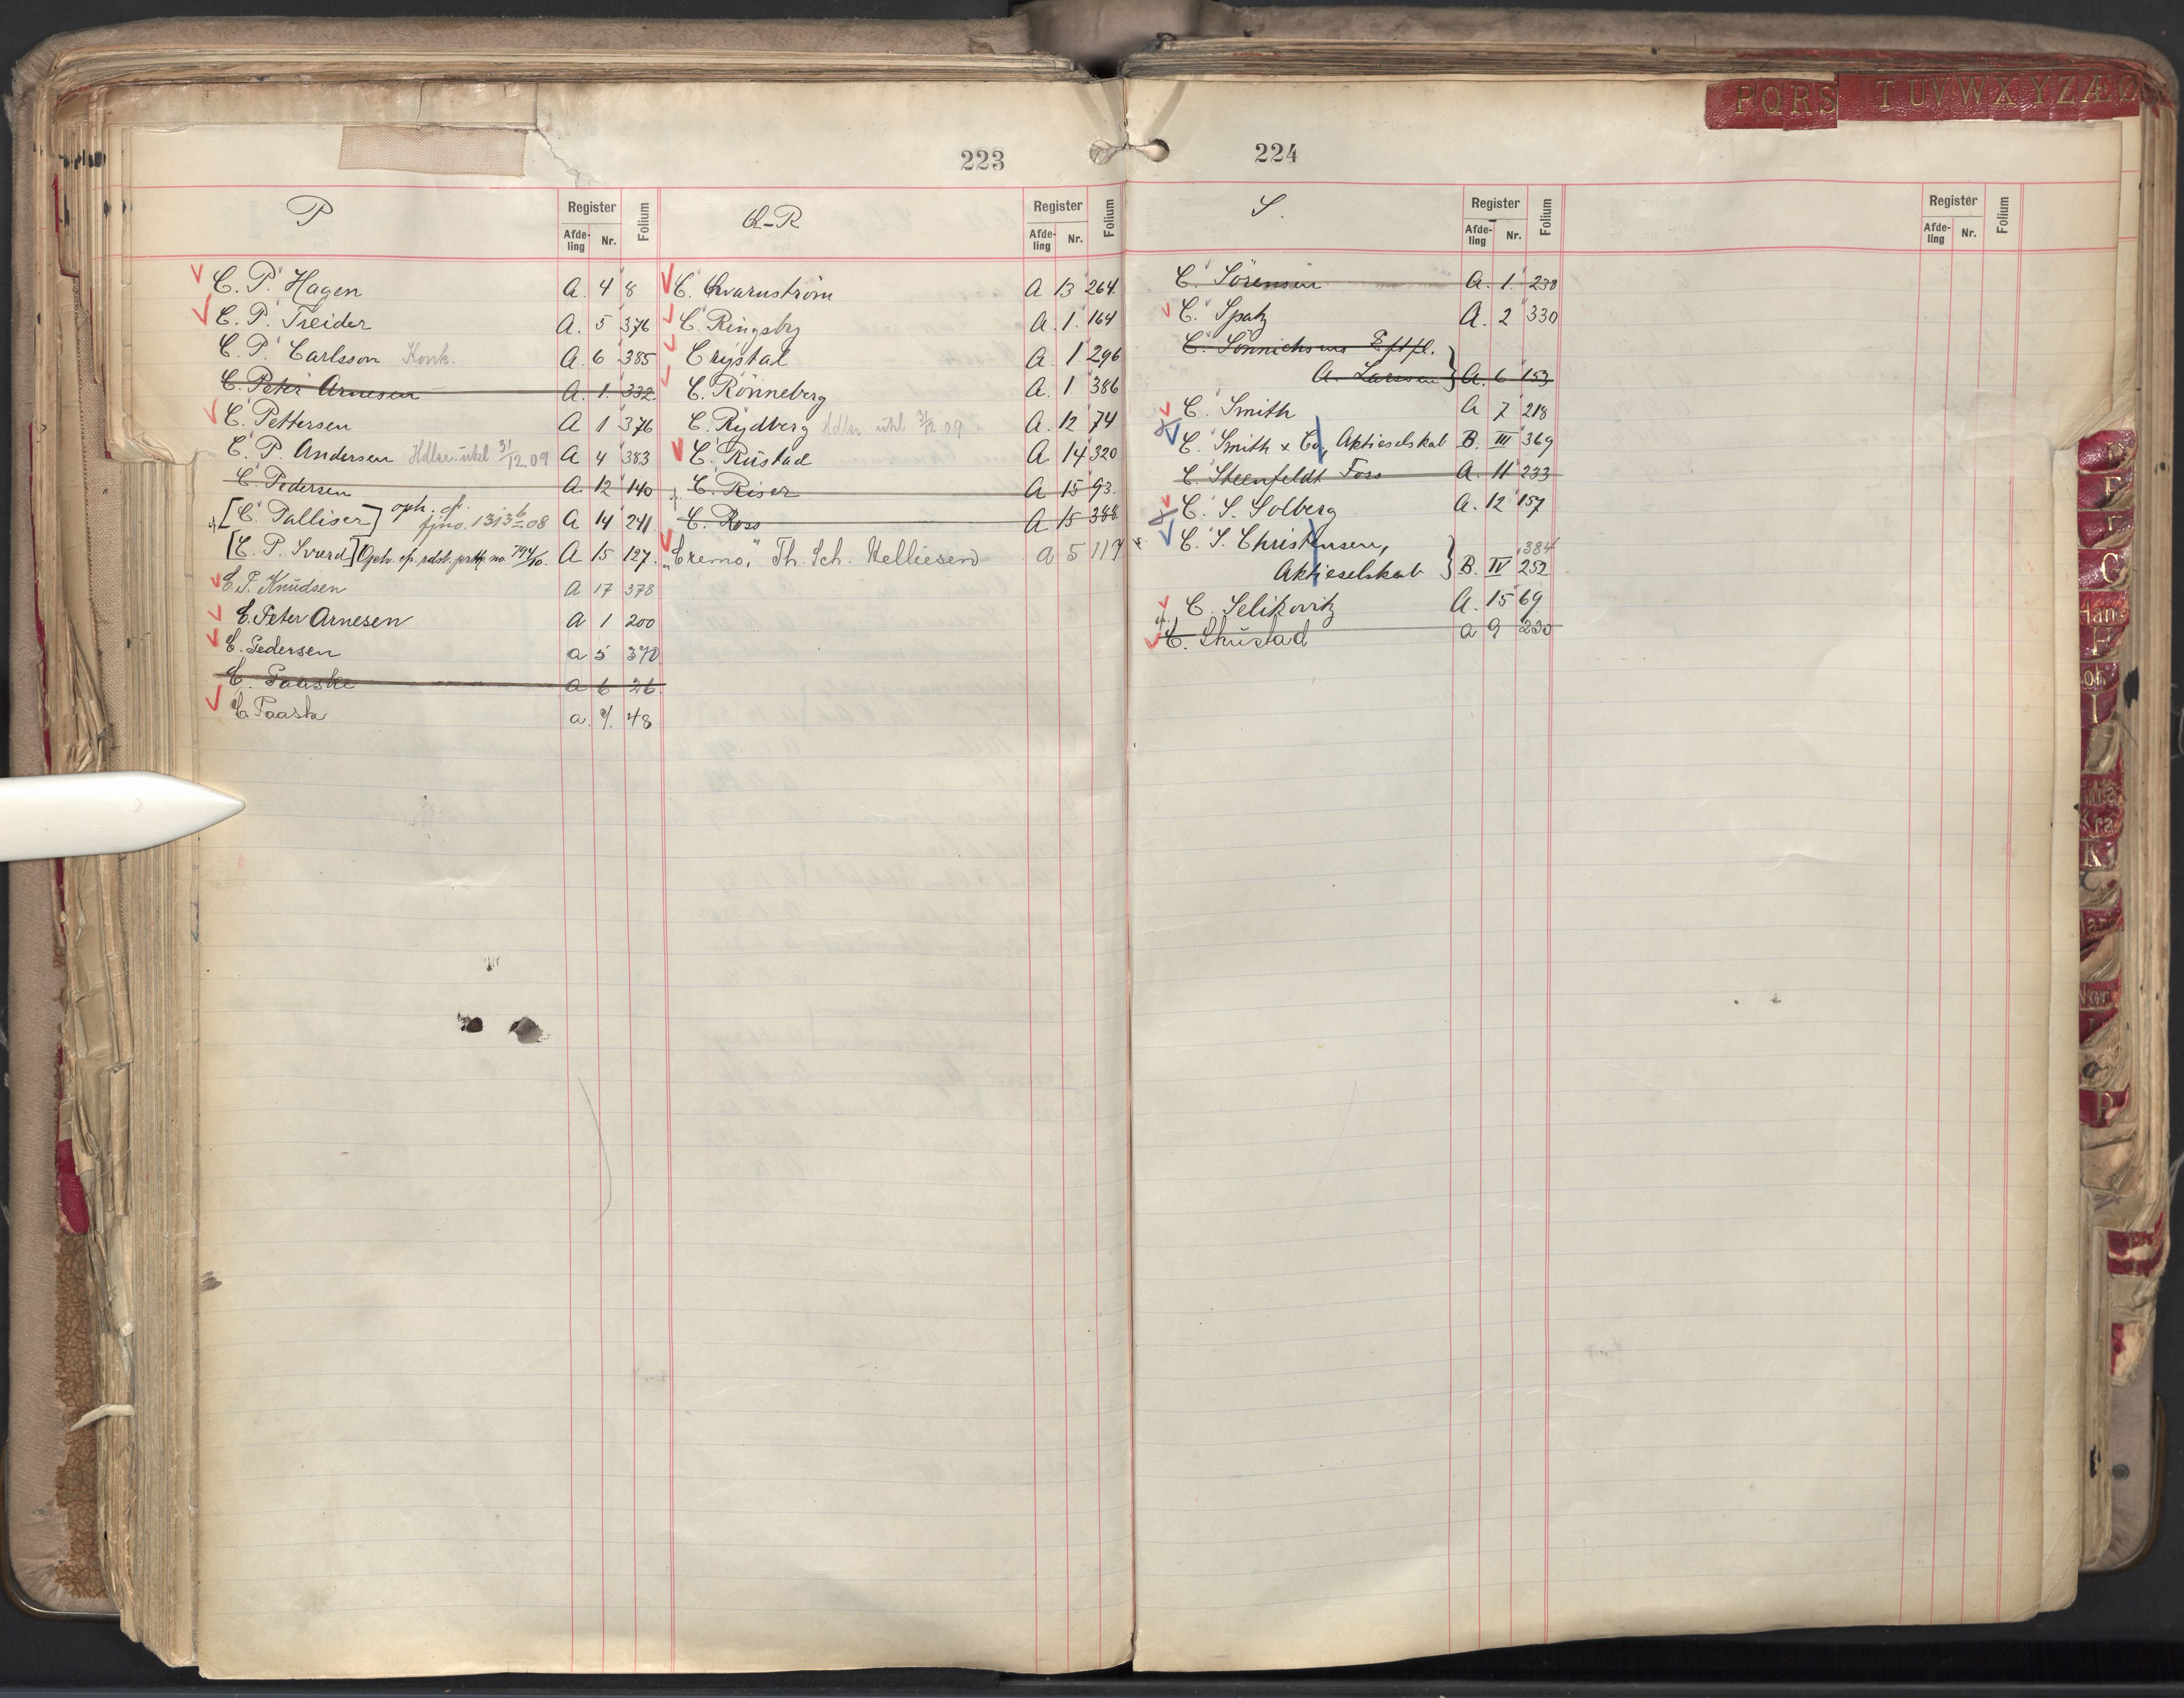 223
P
Register
Afde-
ling
Nr.
Folium
C. P. Hagen A. 4 8
C. P. Treider A. 5 376
C. P. Carlsson Konk. A. 6 385
C. Peter Arnesen A. 1. 332
C. Pettersen A 1 376
C. P. Andersen Hdlsr. utkl 31/12.09 A 4 383
C. Pedersen A 12 140
[C. Palliser] oph. cf.
A 14 241
[C. P. Sverd] Oph. cf. A 15 127.
C. P. Knudsen A 17 378
C. Peter Arnesen A 1 200
C. Pedersen a 5 370
C. Paaske a 6 26
C. Paaske a. 9. 48
Q-R
Register
Afde-
ling
Nr.
Folium
C. Qvarnström A 13 264.
C. Ringsby A. 1. 164
Crystal A. 1 296
C. Rönneberg A. 1 386
C. Rydberg Hdlsr. utkl. 31/12.09 A. 12 74
C. Rustad A. 14 320
C. Riser A 15 93.
C. Ross A. 15 388
"Cremo," Th. Sch. Helliesen a 5 119
224
PQRS TUVWXYZÆØ
S.
Register
Afde-
ling
Nr.
Folium
C. Sörensen A. 1. 230
C. Spatz A. 2 330
C. Sönnichsens Eftfl.
A. Larssen } A. 6 153
C. Smith A 7 218
C. Smith & Co, Aktieselskab B. III 369
C. Steenfeldt Foss A. 11 233
C. S. Solberg A. 12 157
C. S. Christensen, 384
Aktieselskab } B. IV 252
C. Selikovitz A. 15 69
C. Skustad a 9 230
Register
Afde-
ling
Nr.
Folium